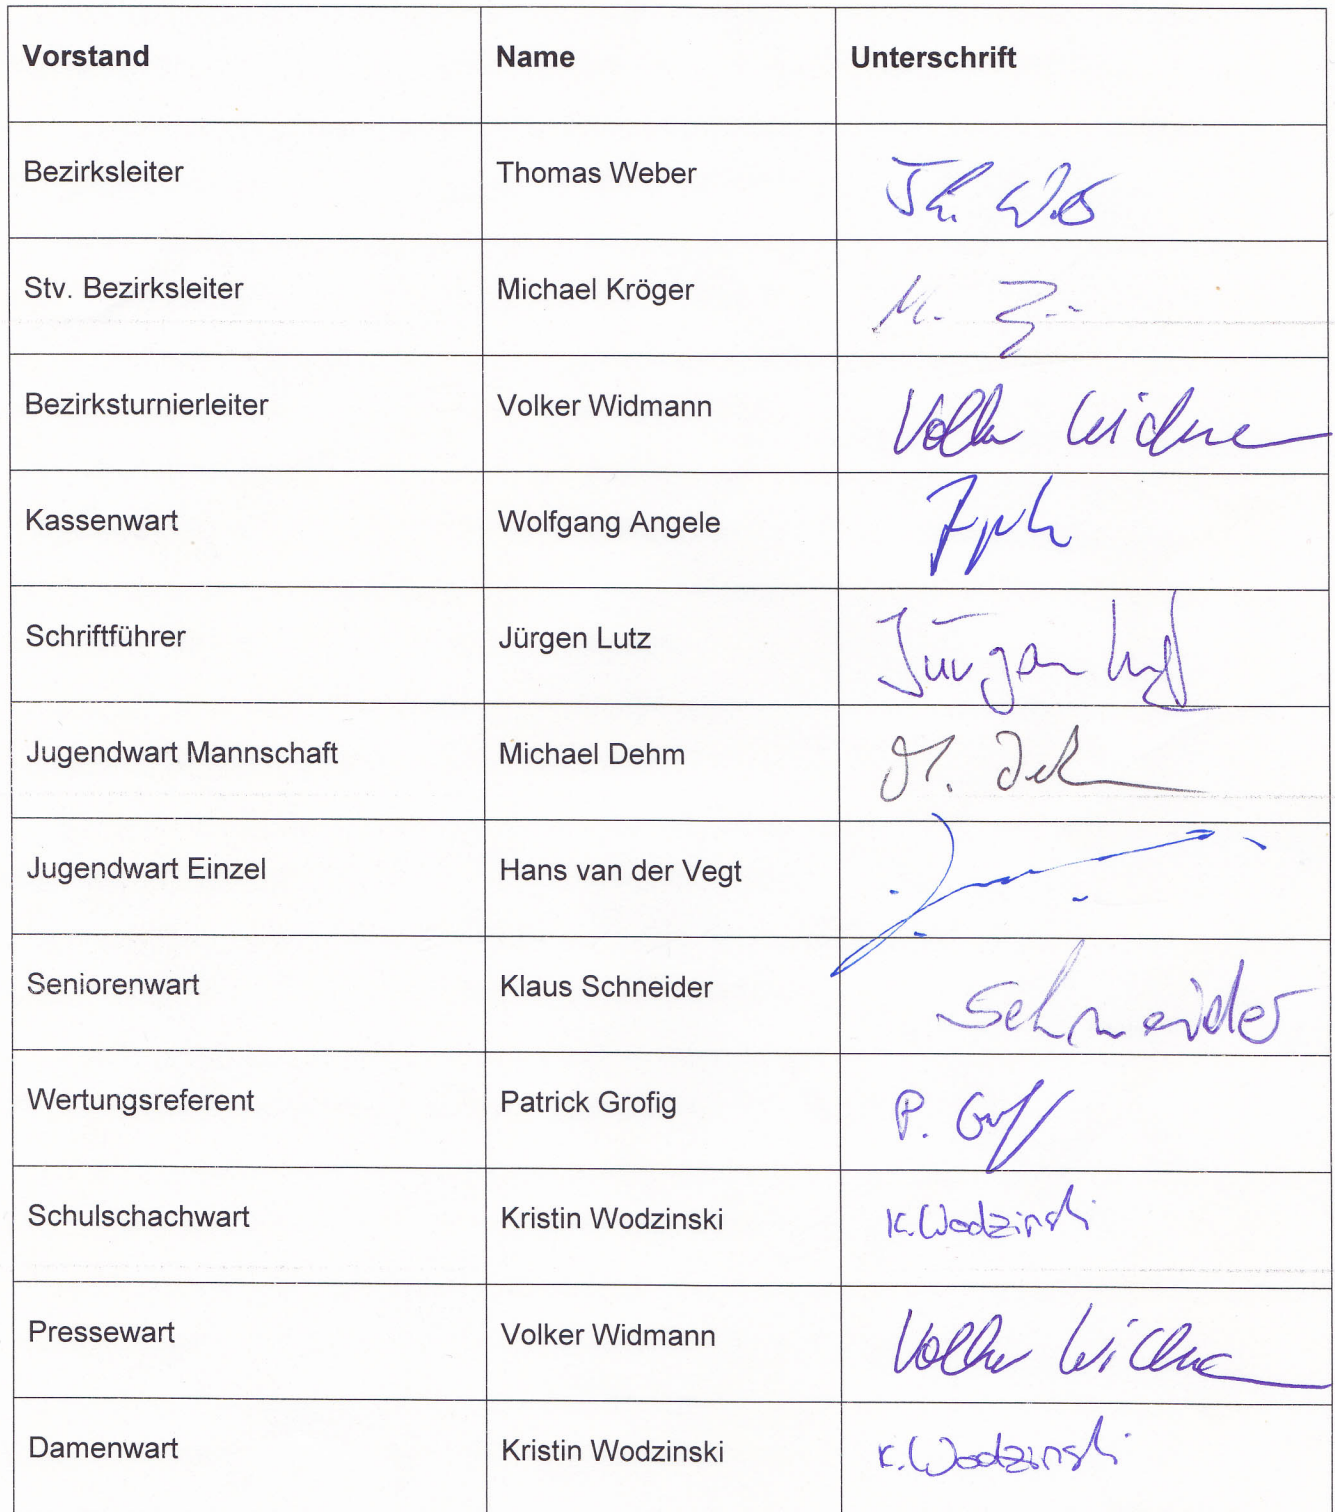 Vorstand Name Unterschrift
Bezirksleiter Thomas Weber
Stv. Bezirksleiter Michael Kröger M.
Bezirksturnierleiter Volker Widmann Volker Widmann
Kassenwart Wolfgang Angele
Schriftführer Jürgen Lutz Jürgen Lutz
Jugendwart Mannschaft Michael Dehm M. Dehm
Jugendwart Einzel Hans van der Vegt
Seniorenwart Klaus Schneider Schneider
Wertungsreferent Patrick Grofig P.
Schulschachwart Kristin Wodzinski K. Wodzinski
Pressewart Volker Widmann Volker Widmann
Damenwart Kristin Wodzinski K. Wodzinski